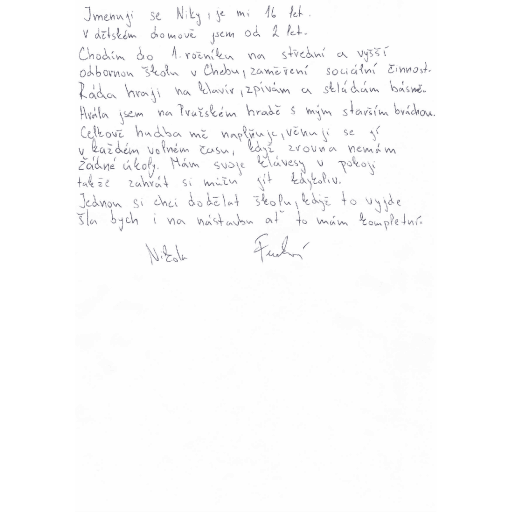 Jmenuji se Niky, je mi 16 let.
V dětském domově jsem od 2 let.
Chodím do 1. ročníku na střední a vyšší
odbornou školu v Chebu, zaměření sociální činnost.
Ráda hraji na klavír, zpívám a skládám básně.
Hrála jsem na Pražském hradě s mým starším bráchou.
Celkově hudba mě naplňuje, věnuji se jí
v každém volném času, když zrovna nemám
žádné úkoly. Mám svoje klávesy v pokoji
takže zahrát si můžu jít kdykoliv.
Jednou si chci dodělat školu, když to vyjde
šla bych i na nástavbu ať to mám kompletní.
Nikola